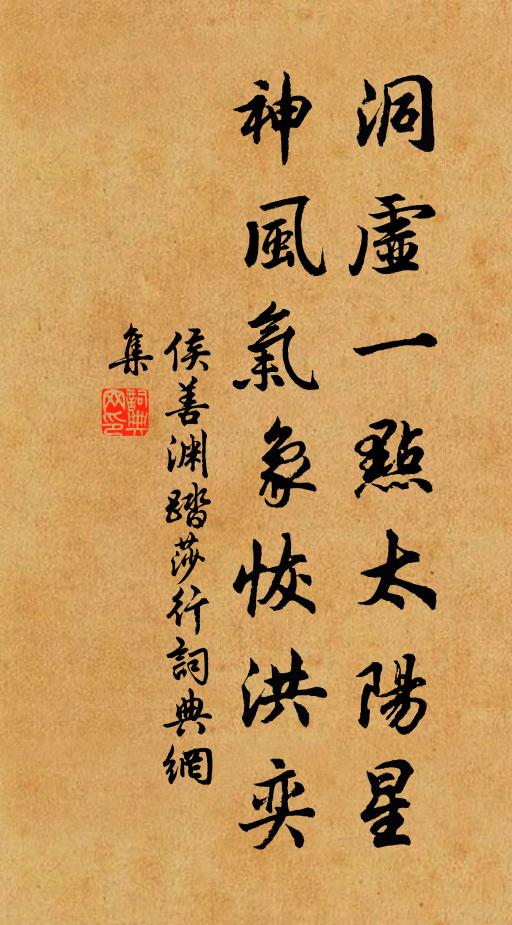 洞虛一點太陽星
神風氣象恢洪奕
侯善渊踏莎行詞典網
集
詞典网印